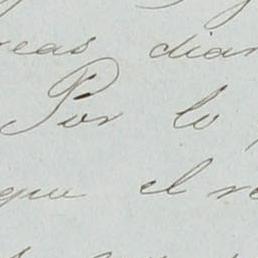 reas dian
Por lo
que el re